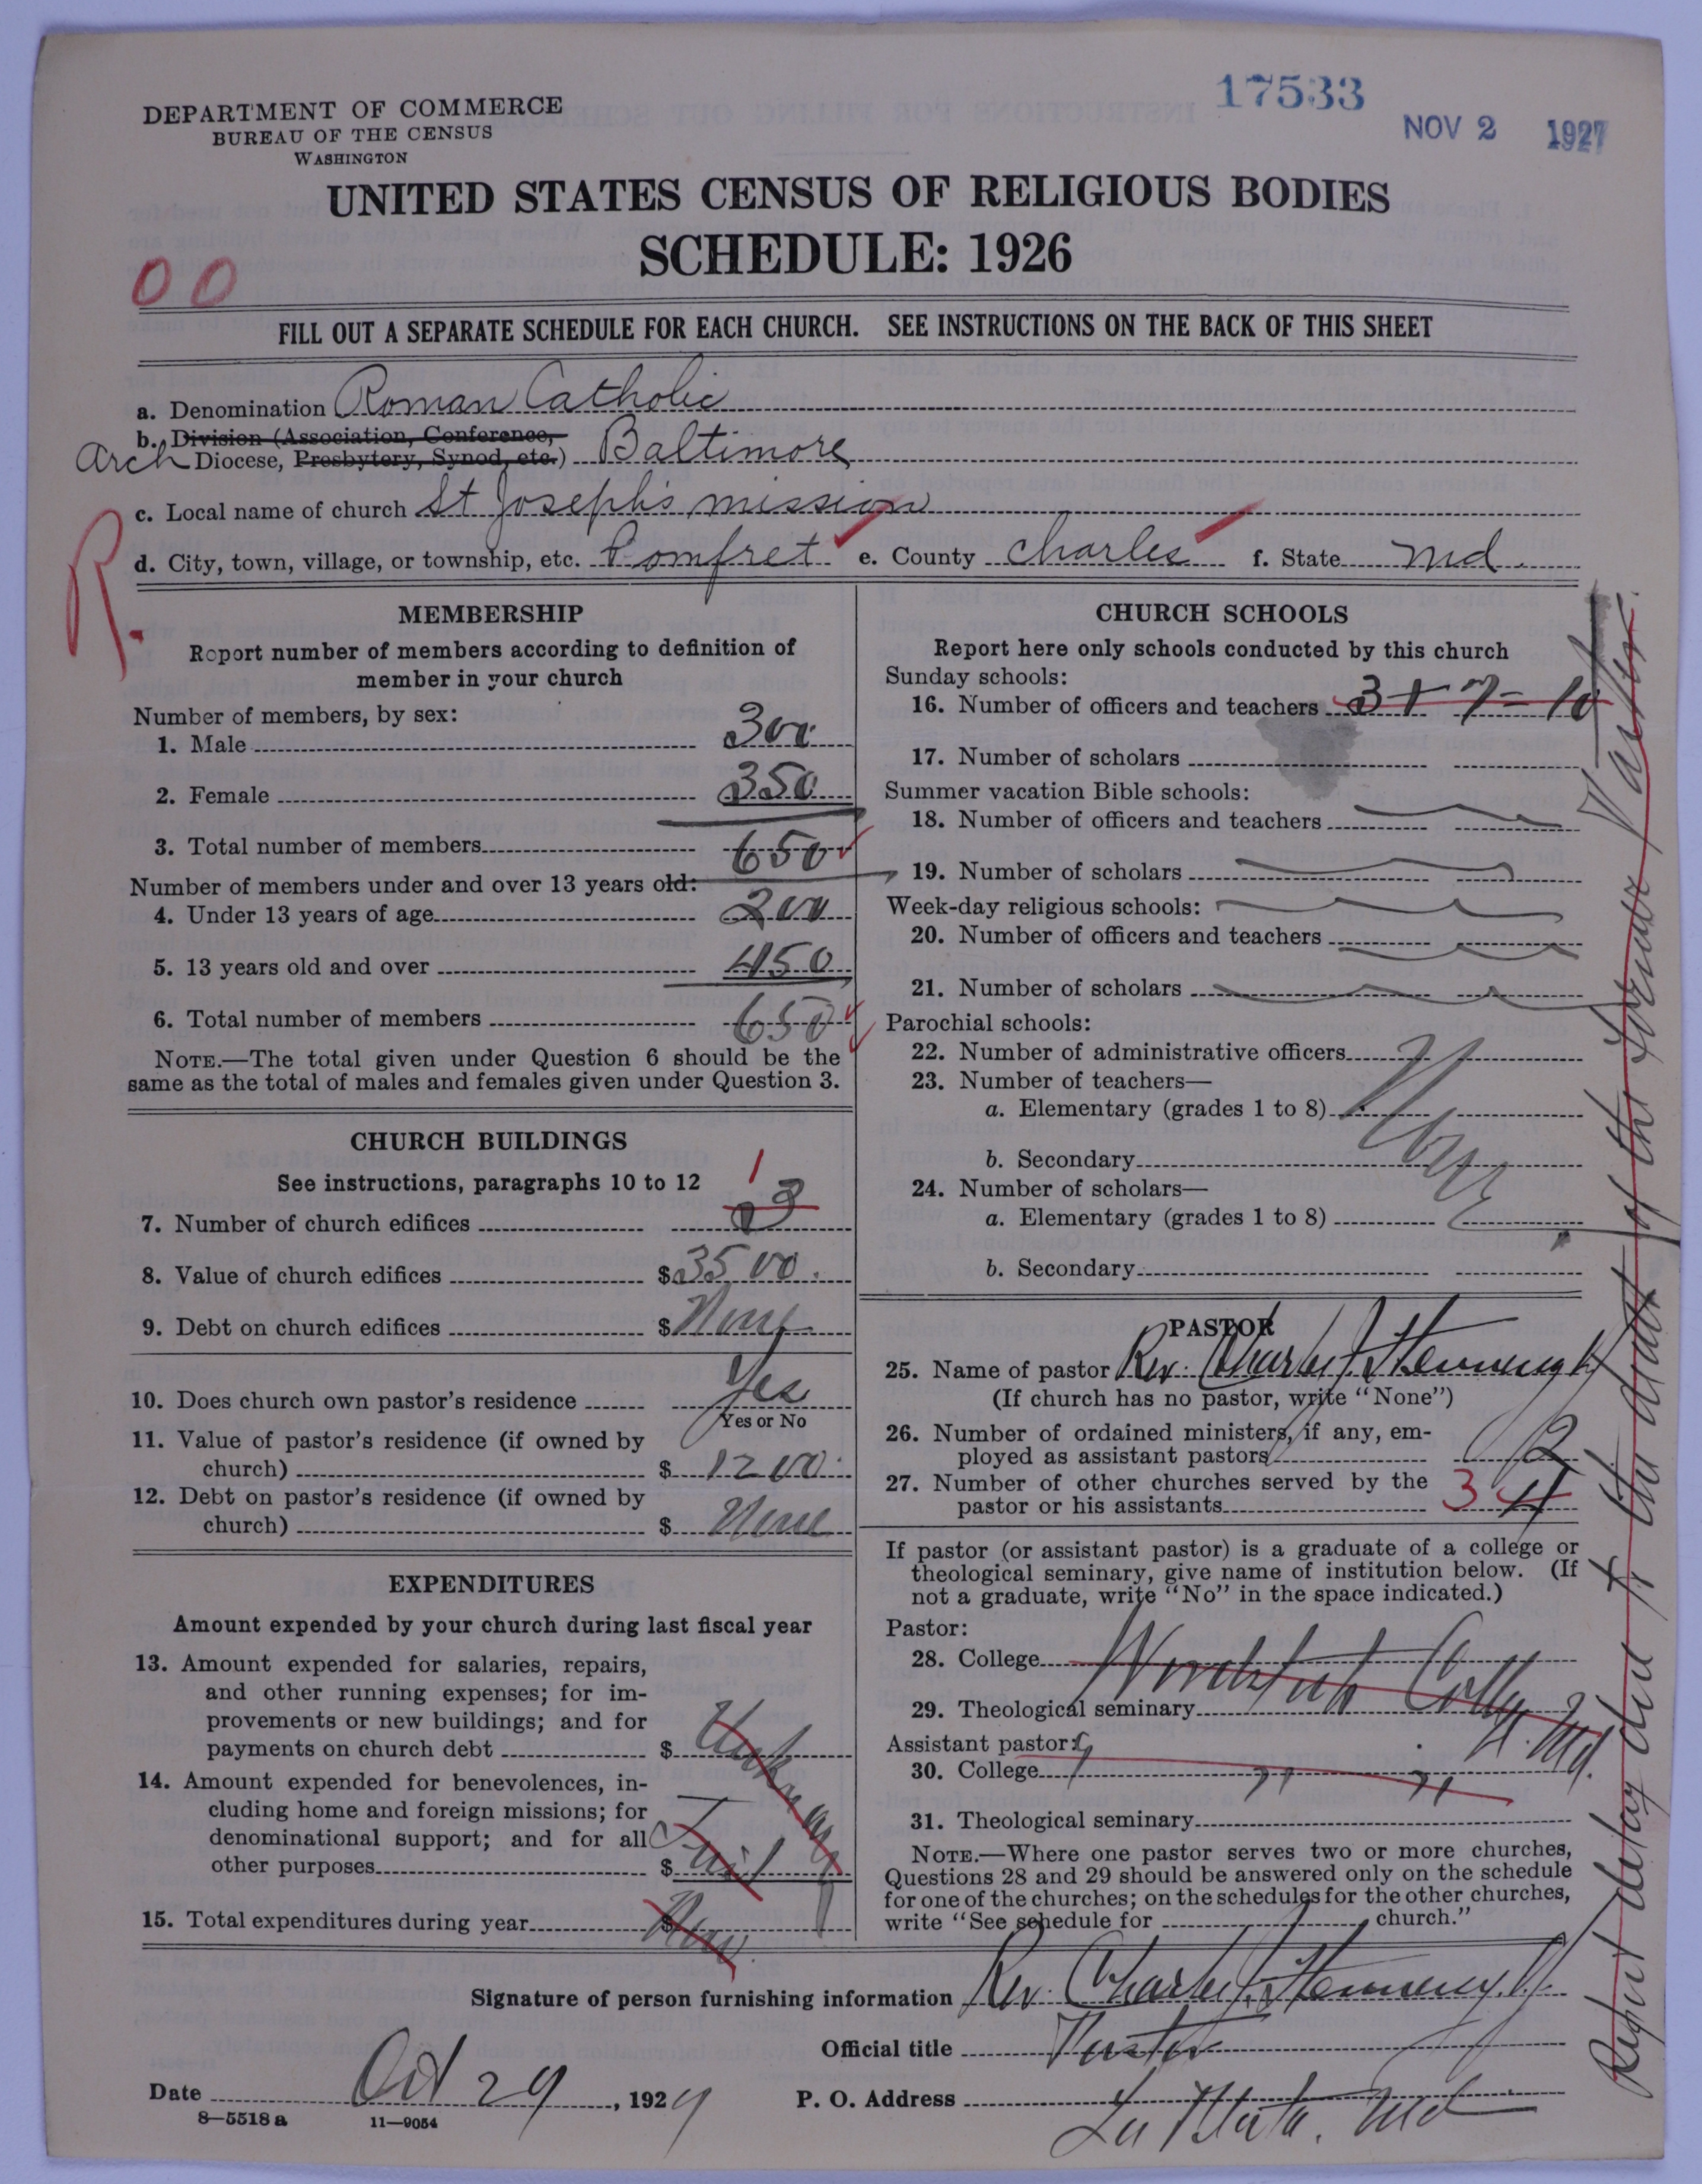 17533
NOV 2 1927
DEPARTMENT OF COMMERCE
BUREAU OF THE CENSUS
WASHINGTON
UNITED STATES CENSUS OF RELIGIOUS BODIES
SCHEDULE: 1926
00
FILL OUT A SEPARATE SCHEDULE FOR EACH CHURCH. SEE INSTRUCTIONS ON THE BACK OF THIS SHEET
a. Denomination Roman Catholic
b. Division (Association, Conference,
Arch Diocese, Presbytery, Synod, etc.) Baltimore
c. Local name of church St Joseph's mission
d. City, town, village, or township, etc. Pomfret e. County Charles f. State Md.
R.
MEMBERSHIP
Report number of members according to definition of
member in your church
Number of members, by sex:
1. Male 300
2. Female 350
3. Total number of members 650
Number of members under and over 13 years old:
4. Under 13 years of age 200
5. 13 years old and over 450
6. Total number of members 650
NOTE.—The total given under Question 6 should be the
same as the total of males and females given under Question 3.
CHURCH BUILDINGS
See instructions, paragraphs 10 to 12
7. Number of church edifices 1 3
8. Value of church edifices $3500.
9. Debt on church edifices $None
10. Does church own pastor's residence Yes
Yes or No
11. Value of pastor's residence (if owned by
church) $1200.
12. Debt on pastor's residence (if owned by
church) $None
EXPENDITURES
Amount expended by your church during last fiscal year
13. Amount expended for salaries, repairs,
and other running expenses; for im-
provements or new buildings; and for
payments on church debt $
14. Amount expended for benevolences, in-
cluding home and foreign missions; for
denominational support; and for all
other purposes $
15. Total expenditures during year $
CHURCH SCHOOLS
Report here only schools conducted by this church
Sunday schools:
16. Number of officers and teachers 3+7=10
17. Number of scholars
Summer vacation Bible schools:
18. Number of officers and teachers
19. Number of scholars
Week-day religious schools:
20. Number of officers and teachers
21. Number of scholars
Parochial schools:
22. Number of administrative officers
23. Number of teachers—
a. Elementary (grades 1 to 8)
None
b. Secondary
24. Number of scholars—
a. Elementary (grades 1 to 8)
b. Secondary
PASTOR
25. Name of pastor Rev. Charles J. Hennessy
(If church has no pastor, write "None")
26. Number of ordained ministers, if any, em-
ployed as assistant pastors 2
27. Number of other churches served by the
pastor or his assistants 3 4
If pastor (or assistant pastor) is a graduate of a college or
theological seminary, give name of institution below. (If
not a graduate, write "No" in the space indicated.)
Pastor:
28. College Woodstock College
29. Theological seminary Md.
Assistant pastor:
30. College " "
31. Theological seminary
NOTE.—Where one pastor serves two or more churches,
Questions 28 and 29 should be answered only on the schedule
for one of the churches; on the schedules for the other churches,
write "See schedule for church."
Signature of person furnishing information Rev. Charles J. Hennessy
Official title Pastor
Date Oct 29, 1927 P. O. Address La Plata, Md
8-5518 a 11-9054
Report delay due to the death of the former Pastor.